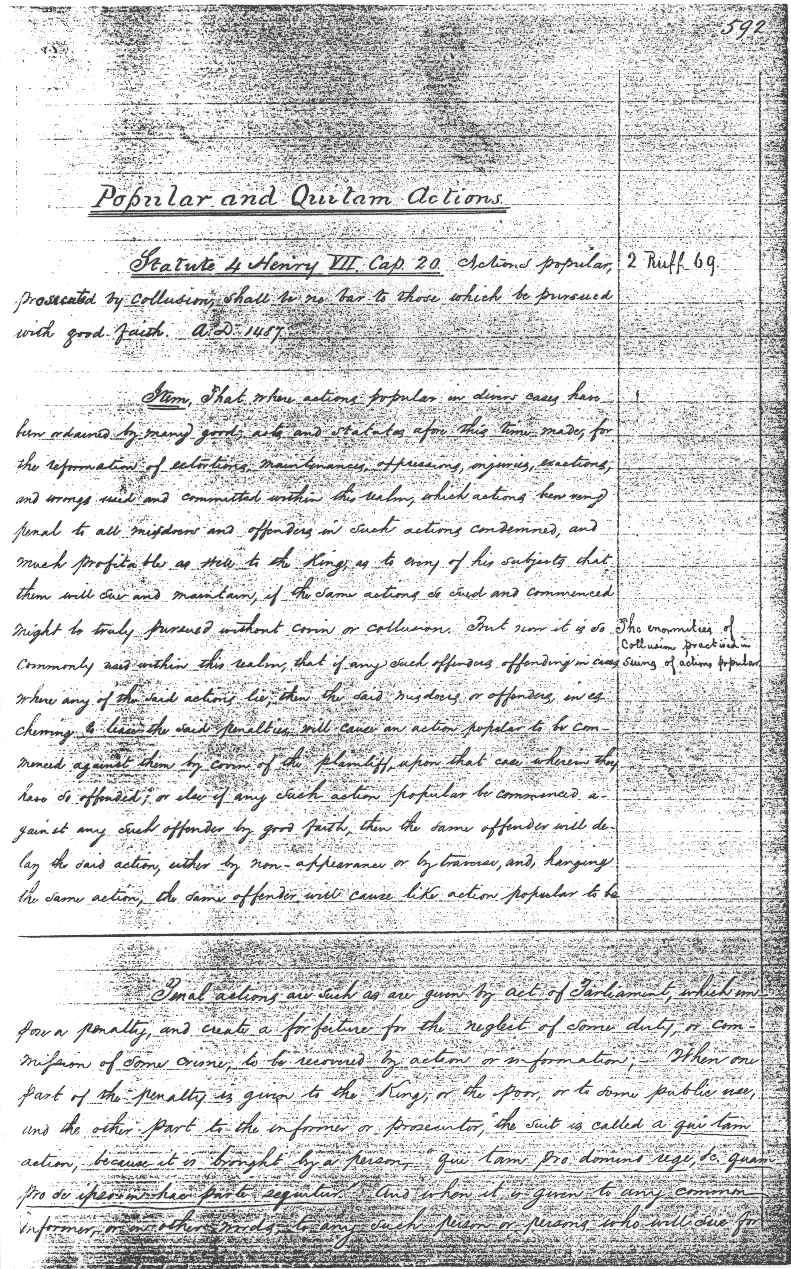 592
Popular and Quitam Actions.
Statute 4 Henry VII. Cap. 20. Actions popular,
2 Ruff. 69.
prosecuted by collusion, shall be no bar to those which be pursued
with good faith. A.D. 1487.
Item, That where actions popular in divers cases have
been ordained by many good, acts and statutes afore this time made, for
the reformation of extortions, maintenances, oppressions, injuries, exactions,
and wrongs used and committed within this realm, which actions been very
penal to all misdoers and offenders in such actions condemned, and
much profitable as well to the King, as to every of his subjects that
them will sue and maintain, if the same actions so sued and commenced
might be truly pursued without covin or collusion. But now it is so
commonly used within this realm, that if any such offenders offending in cases
The enormities of
Collusion practised in
suing of actions popular.
where any of the said actions lie, then the said misdoers or offenders, in es
chewing to leese the said penalties, will cause an action popular to be com-
menced against them by covin of the plaintiff, upon that case wherein they
have so offended; or else if any such action popular be commenced a-
gainst any such offender by good faith, then the same offender will de-
lay the said action, either by non-appearance or by traverse, and, hanging
the same action, the same offender will cause like action popular to be
Penal actions are such as are given by act of Parliament, which im-
pose a penalty, and create a forfeiture for the neglect of some duty, or com-
mission of some crime, to be recovered by action or information; — When one
part of the penalty is given to the King, or the poor, or to some public use,
and the other part to the informer or prosecutor, the suit is called a qui tam
action, because it is brought by a person, "qui tam pro domino rege, &c. quam
pro se ipso in hac parte sequitur." And when it is given to any common
informer, or in other words, to any such person or persons who will sue for